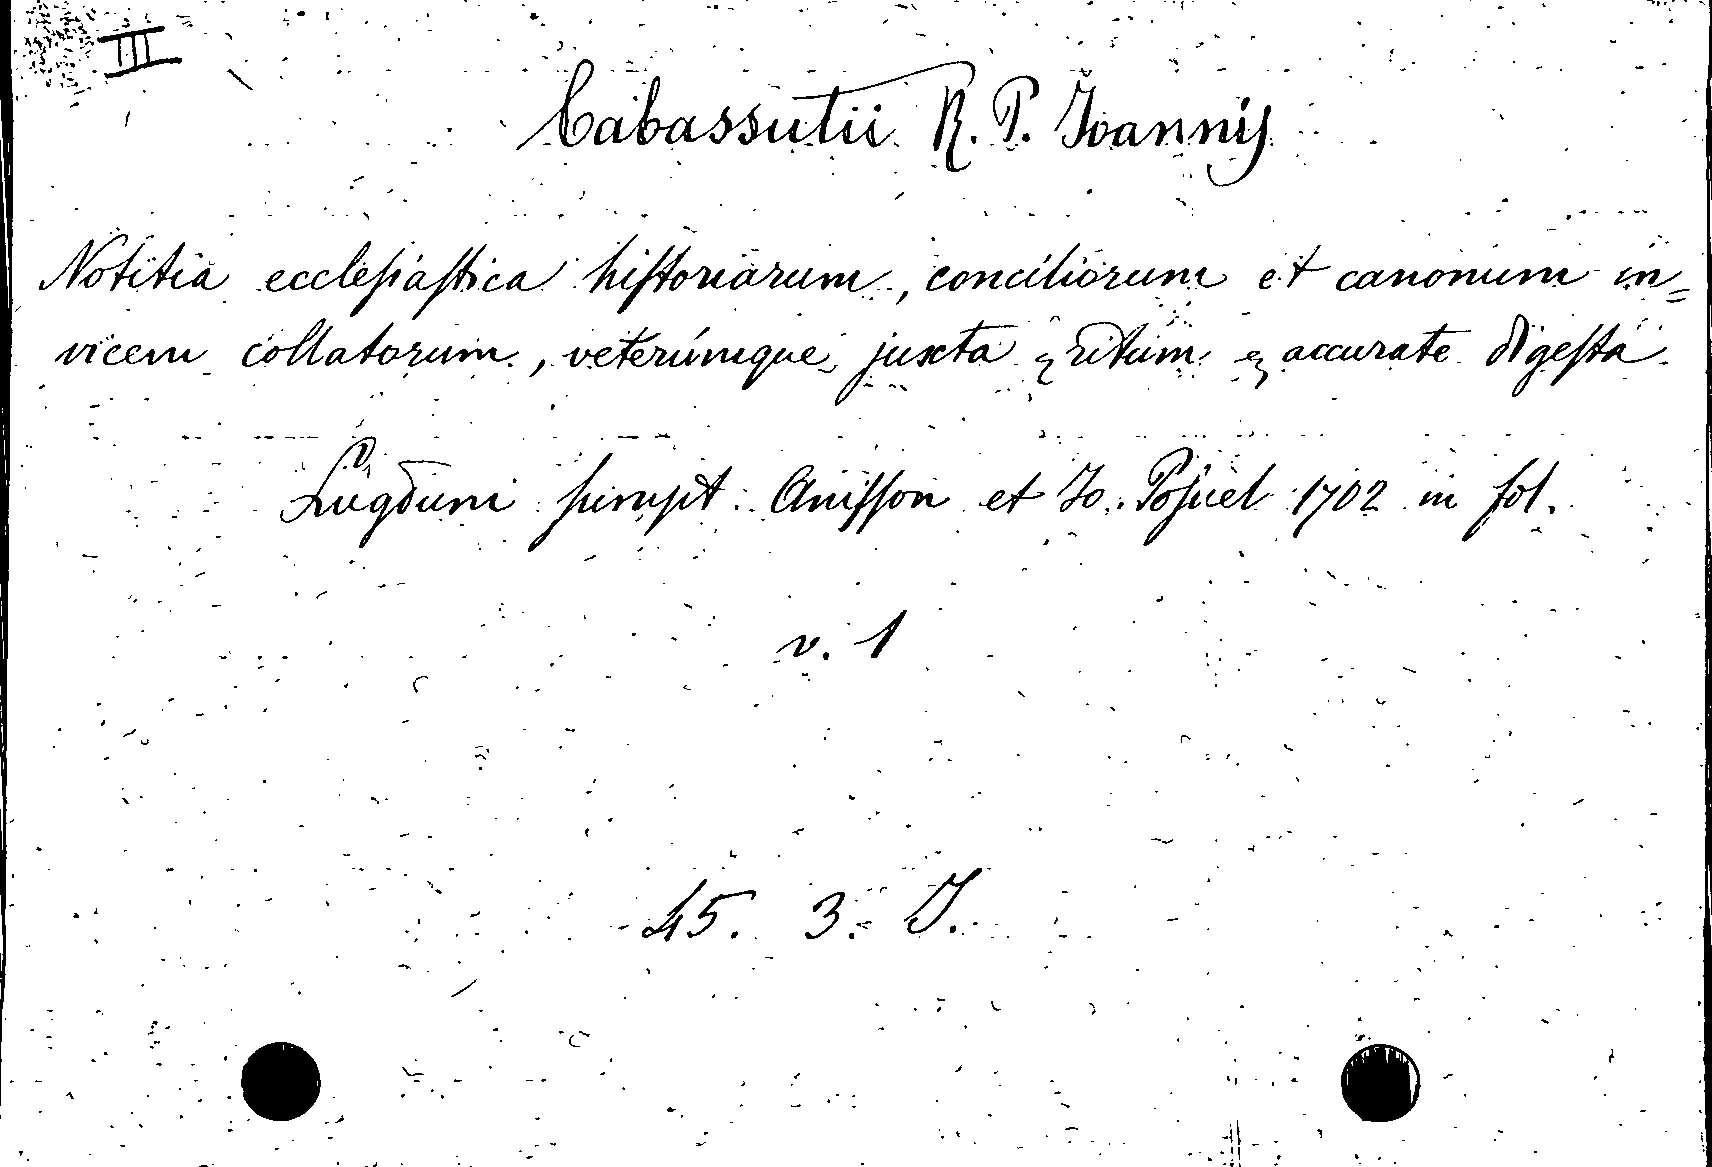 III
Cabassutii R. P. Joannis
Notitia ecclesiastica historiarum, conciliorum et canonum in=
vicem collatorum, veterúmque juxta ritum accurate digesta
Lugduni sumpt. Anisson et Jo. Posuel 1702 in fol.
v. 1
45. 3. J.